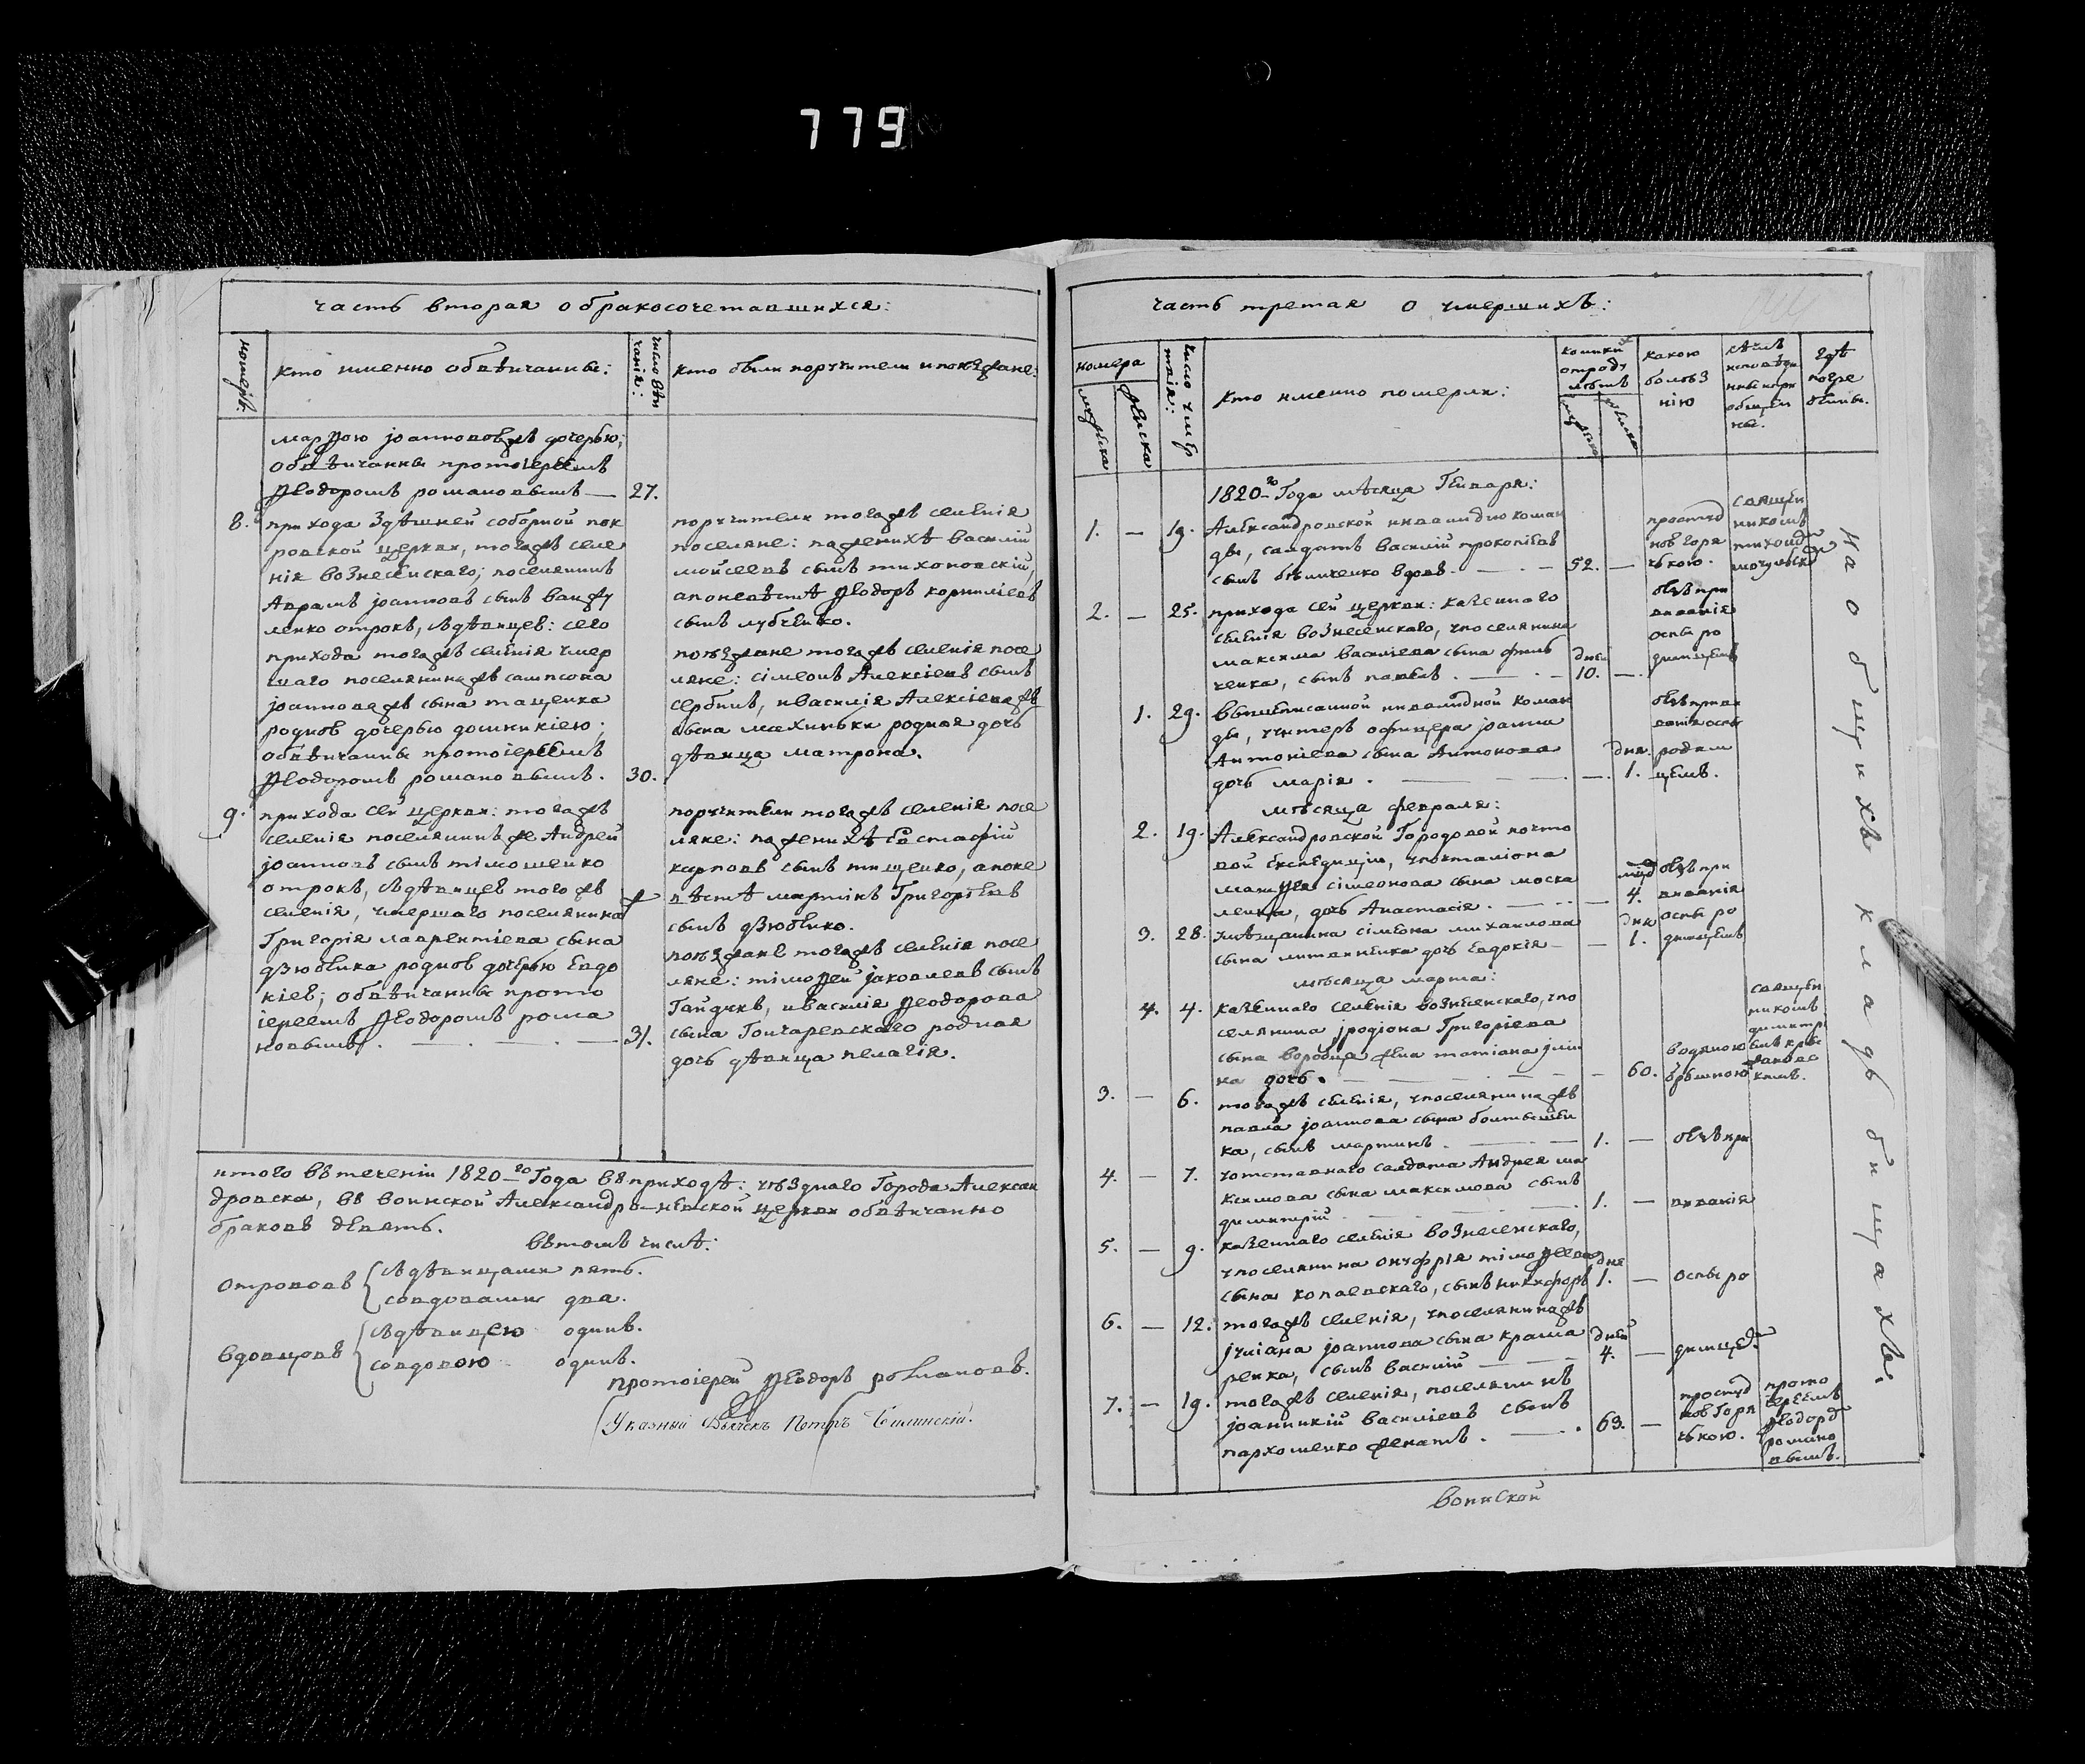 779
часть вторая о бракосочетавшихся:
номеръ.
кто именно обвѣнчанны:
число вѣн
чанія:
кто были поручители и поѣзжане:
марѳою іоанновою жъ дочерью;
обвѣнчанны протоіереемъ
Ѳеодоромъ романовымъ —
27.
8.
прихода здѣшней соборной пок
ровской церкви, того жъ селе
нія вознесенскаго; поселянинъ
Аврамъ іоанновъ сынъ
ленко отрокъ, з дѣвицею: сего
прихода того жъ селенія умер
шаго поселянина жъ сампсона
іоаннова жъ сына тащенка
родною дочерью домникіею;
обвѣнчанны протоіереемъ
Ѳеодоромъ романовымъ.
30.
поручители того жъ селенія
поселяне: по женихѣ василій
мойсеевъ сынъ тихоновскій,
а по невѣстѣ Ѳеодоръ корниліевъ
сынъ лубенко.
поѣзжане того жъ селенія посе
ляне: сімеонъ Алексіевъ сынъ
сербинъ, и василія Алексіева жъ
сына махиньки родная дочь
дѣвица матрона.
9.
прихода сей церкви: того жъ
селенія поселянинъ же Андрей
іоанновъ сынъ тімошенко
отрокъ, з дѣвицею того жъ
селенія, умершаго поселянина
Григорія лаврентіева сына
дзюбенка родною дочерью Евдо
кіею; обвѣнчанны прото
іереемъ Ѳеодоромъ рома
новымъ.
31.
поручители того жъ селенія посе
ляне: по женихѣ Евстафій
карповъ сынъ тищенко, а по не
вѣстѣ мартинъ Григоріевъ
сынъ дзюбенко.
поѣзжане того жъ селенія посе
ляне: тімоѳей іаковлевъ сынъ
Гайдукъ, и василія Ѳеодорова
сына Гончаревскаго родная
дочь дѣвица пелагія.
итого въ теченіи 1820-го Года въ приходѣ: уѣзднаго Города Алексан
дровска, въ воинской Александро-невской церкви обвѣнчанно
браковъ девять.
въ томъ числѣ:
Отроковъ
з дѣвицами пять.
со вдовами два.
вдовцовъ
з дѣвицею одинъ.
со вдовою одинъ.
протоіерей Ѳеодоръ романовъ.
Указный Дьячекъ Петръ
часть третая о умершихъ:
номера
мужеска
женска
число умер
твія:
кто именно померли:
колики
отроду
лѣтъ
мужска
женска
какою
болѣз
нію
кѣмъ
исповѣда
ны и при
общен
ны.
гдѣ
погре
бенны.
1820-го Года мѣсяца Генваря:
1. — 19.
Александровской инвалидно коман
ды, салдатъ василій прокопіевъ
сынъ бѣличенко вдовъ.
52. —
простуд
ною горя
чькою.
священ
никомъ
2. — 25.
прихода сей церкви: казеннаго
селенія вознесенскаго, у поселянина
максима василіева сына
ченка, сынъ павелъ.
дней
10. —
отъ при
виванія
оспы ро
димцемъ
1. 29.
вышеписанной инвалидной коман
ды, у унтеръ офицера іоанна
Антоніева сына Антонова
дочь марія.
дня.
— 1.
отъ приви
ванія оспы
родим
цемъ.
мѣсяца февраля:
2. 19.
Александровской Городовой почто
вой Експедиціи, у почталіона
матѳея сімеонова сына моска
ленка, дочь Анастасія.
— 4.
отъ при
виванія
3. 28.
у мѣщанина сімеона михаилова
сына литвиненка дочь Евдокія —
дня
— 1.
оспы ро
димцемъ
мѣсяца марта:
4. 4.
казеннаго селенія вознесенскаго, у по
селянина іродіона Григоріева
сына воробца жена татіана
на дочь.
— 60.
водяною
священ
никомъ
димитрі
емъ
3. — 6.
того жъ селенія, у поселянина жъ
павла іоаннова сына болтышен
ка, сынъ мартинъ.
1. —
отъ при
4. — 7.
у отставнаго салдата Андрея ма
ксимова сына максимова сынъ
димитрій
1. —
виванія
5. — 9.
казеннаго селенія вознесенскаго,
у поселянина онуфрія тімоѳеева
сына копаевскаго, сынъ никифоръ
дня
1. —
оспы ро
6. — 12.
того жъ селенія, у поселянина жъ
іуліана іоаннова сына крама
ренка, сынъ василій
дней
4. —
димцемъ
7. — 19.
того жъ селенія, поселянинъ
іоанникій василіевъ сынъ
пархоменко женатъ.
63. —
простуд
ною горя
чькою.
прото
іереемъ
Ѳеодоро
романо
вымъ.
на общихъ кладьбищахъ.
воинской